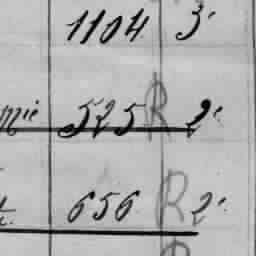 1104 3e
mie 525 R 2e
656 R 2e